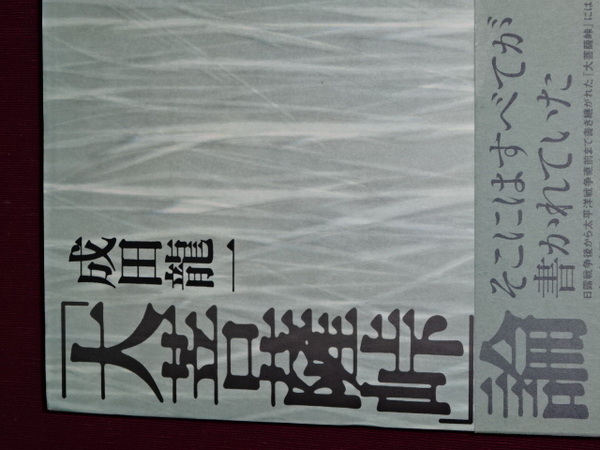 「大菩薩峠」論
成田龍一
そこにはすべてが
書かれていた
日露戦争後から太平洋戦争直前まで書き継がれた「大菩薩峠」には